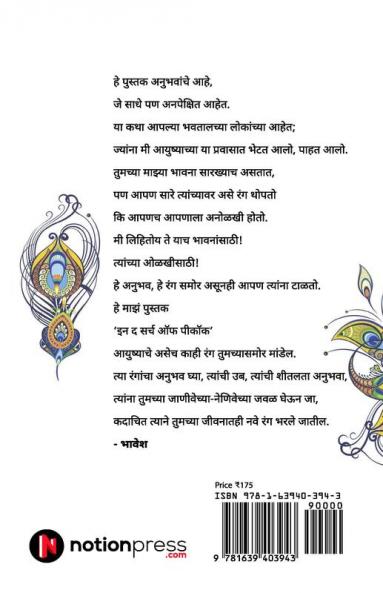 हे पुस्तक अनुभवांचे आहे,
जे साधे पण अनपेक्षित आहेत.
या कथा आपल्या भवतालच्या लोकांच्या आहेत;
ज्यांना मी आयुष्याच्या या प्रवासात भेटत आलो, पाहत आलो.
तुमच्या माझ्या भावना सारख्याच असतात,
पण आपण सारे त्यांच्यावर असे रंग थोपतो
कि आपणच आपणाला अनोळखी होतो.
मी लिहितोय ते याच भावनांसाठी!
त्यांच्या ओळखीसाठी!
हे अनुभव, हे रंग समोर असूनही आपण त्यांना टाळतो.
हे माझं पुस्तक
‘इन द सर्च ऑफ पीकॉक’
आयुष्याचे असेच काही रंग तुमच्यासमोर मांडेल.
त्या रंगांचा अनुभव घ्या, त्यांची उब, त्यांची शीतलता अनुभवा,
त्यांना तुमच्या जाणीवेच्या-नेणिवेच्या जवळ घेऊन जा,
कदाचित त्याने तुमच्या जीवनातही नवे रंग भरले जातील.
- भावेश
Price ₹175
ISBN 978-1-63940-394-3
90000
9 781639 403943
N notionpress
.com